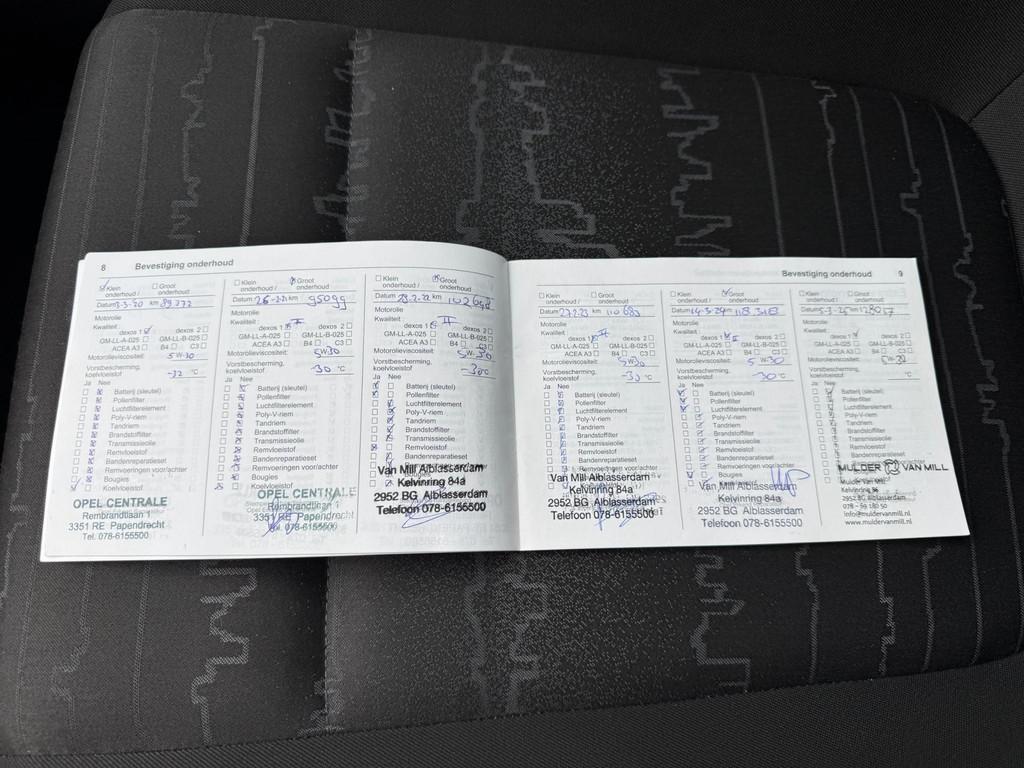 8 Bevestiging onderhoud
Klein onderhoud / Groot onderhoud
Datum 3-3-20 km 89272
Motorolie
Kwaliteit : dexos 1 dexos 2
GM-LL-A-025 GM-LL-B-025
ACEA A3 B4 C3
Motorolieviscositeit: 5W-30
Vorstbescherming, koelvloeistof -32 °C
Ja Nee
Batterij (sleutel)
Pollenfilter
Luchtfilterelement
Poly-V-riem
Tandriem
Brandstoffilter
Transmissieolie
Remvloeistof
Bandenreparatieset
Remvoeringen voor/achter
Bougies
Koelvloeistof
OPEL CENTRALE
Rembrandtlaan 1
3351 RE Papendrecht
Tel. 078-6155500
Klein onderhoud / Groot onderhoud
Datum km 95099
Motorolie
Kwaliteit : dexos 1 dexos 2
GM-LL-A-025 GM-LL-B-025
ACEA A3 B4 C3
Motorolieviscositeit: 5W30
Vorstbescherming, koelvloeistof -30 °C
Ja Nee
Batterij (sleutel)
Pollenfilter
Luchtfilterelement
Poly-V-riem
Tandriem
Brandstoffilter
Transmissieolie
Remvloeistof
Bandenreparatieset
Remvoeringen voor/achter
Bougies
Koelvloeistof
OPEL CENTRALE
Rembrandtlaan 1
3351 RE Papendrecht
Tel. 078-6155500
Klein onderhoud / Groot onderhoud
Datum km
Motorolie
Kwaliteit : dexos 1 dexos 2
GM-LL-A-025 GM-LL-B-025
ACEA A3 B4 C3
Motorolieviscositeit: 5W-30
Vorstbescherming, koelvloeistof -30 °C
Ja Nee
Batterij (sleutel)
Pollenfilter
Luchtfilterelement
Poly-V-riem
Tandriem
Brandstoffilter
Transmissieolie
Remvloeistof
Bandenreparatieset
Van Mill Alblasserdam
Kelvinring 84a
2952 BG Alblasserdam
Telefoon 078-6155500
Bevestiging onderhoud 9
Klein onderhoud / Groot onderhoud
Datum 27.2.23 km 110683
Motorolie
Kwaliteit : dexos 1 dexos 2
GM-LL-A-025 GM-LL-B-025
ACEA A3 B4 C3
Motorolieviscositeit: 5W30
Vorstbescherming, koelvloeistof °C
Ja Nee
Batterij (sleutel)
Pollenfilter
Luchtfilterelement
Poly-V-riem
Tandriem
Brandstoffilter
Transmissieolie
Remvloeistof
Bandenreparatieset
Remvoeringen voor/achter
Van Mill Alblasserdam
Kelvinring 84a
2952 BG Alblasserdam
Telefoon 078-6155500
Klein onderhoud / Groot onderhoud
Datum 14-3-24 km 118 318
Motorolie
Kwaliteit : dexos 1 dexos 2
GM-LL-A-025 GM-LL-B-025
ACEA A3 B4 C3
Motorolieviscositeit: 5W30
Vorstbescherming, koelvloeistof -30 °C
Ja Nee
Batterij (sleutel)
Pollenfilter
Luchtfilterelement
Poly-V-riem
Tandriem
Brandstoffilter
Transmissieolie
Remvloeistof
Bandenreparatieset
Remvoeringen voor/achter
Bougies
Van Mill Alblasserdam
Kelvinring 84a
2952 BG Alblasserdam
Telefoon 078-6155500
Klein onderhoud / Groot onderhoud
Datum 5-3-25 km 128057
Motorolie
Kwaliteit : dexos 1 dexos 2
GM-LL-A-025 GM-LL-B-025
ACEA A3 B4 C3
Motorolieviscositeit: 5W-30
Vorstbescherming, koelvloeistof °C
Ja Nee
Batterij (sleutel)
Pollenfilter
Luchtfilterelement
Poly-V-riem
Tandriem
Brandstoffilter
Transmissieolie
Remvloeistof
Bandenreparatieset
MULDER VAN MILL
Mulder Van Mill
2952 BG Alblasserdam
078 - 69 180 50
info@muldervanmill.nl
www.muldervanmill.nl